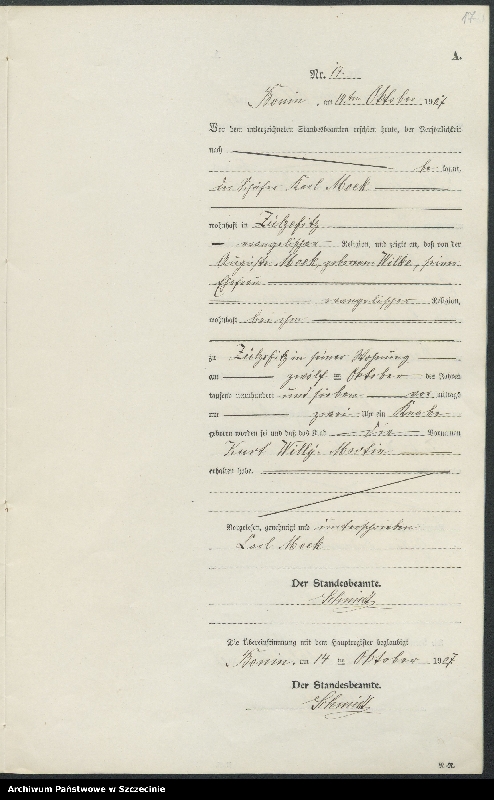 17
A.
Nr. 17.
Ronin, am 14ten Oktober 1907
Vor dem unterzeichneten Standesbeamten erschien heute, der Persönlichkeit
nach
be kannt,
der Schäfer Karl Mock
wohnhaft in Zülzefitz
evangelischer Religion, und zeigte an, daß von der
Auguste Mock, geborenen Wilke, seiner
Ehefrau
evangelischer Religion,
wohnhaft bei ihm
zu Zülzefitz in seiner Wohnung
am zwölften Oktober des Jahres
tausend neunhundert und sieben vor mittags
um zwei Uhr ein Knabe
geboren worden sei und daß das Kind die Vornamen
Kurt Willy Martin
erhalten habe.
Vorgelesen, genehmigt und unterschrieben
Carl Mock
Der Standesbeamte.
Schmidt
Die Übereinstimmung mit dem Hauptregister beglaubigt
Ronin, am 14 ten Oktober 1907
Der Standesbeamte.
Schmidt
Archiwum Państwowe w Szczecinie